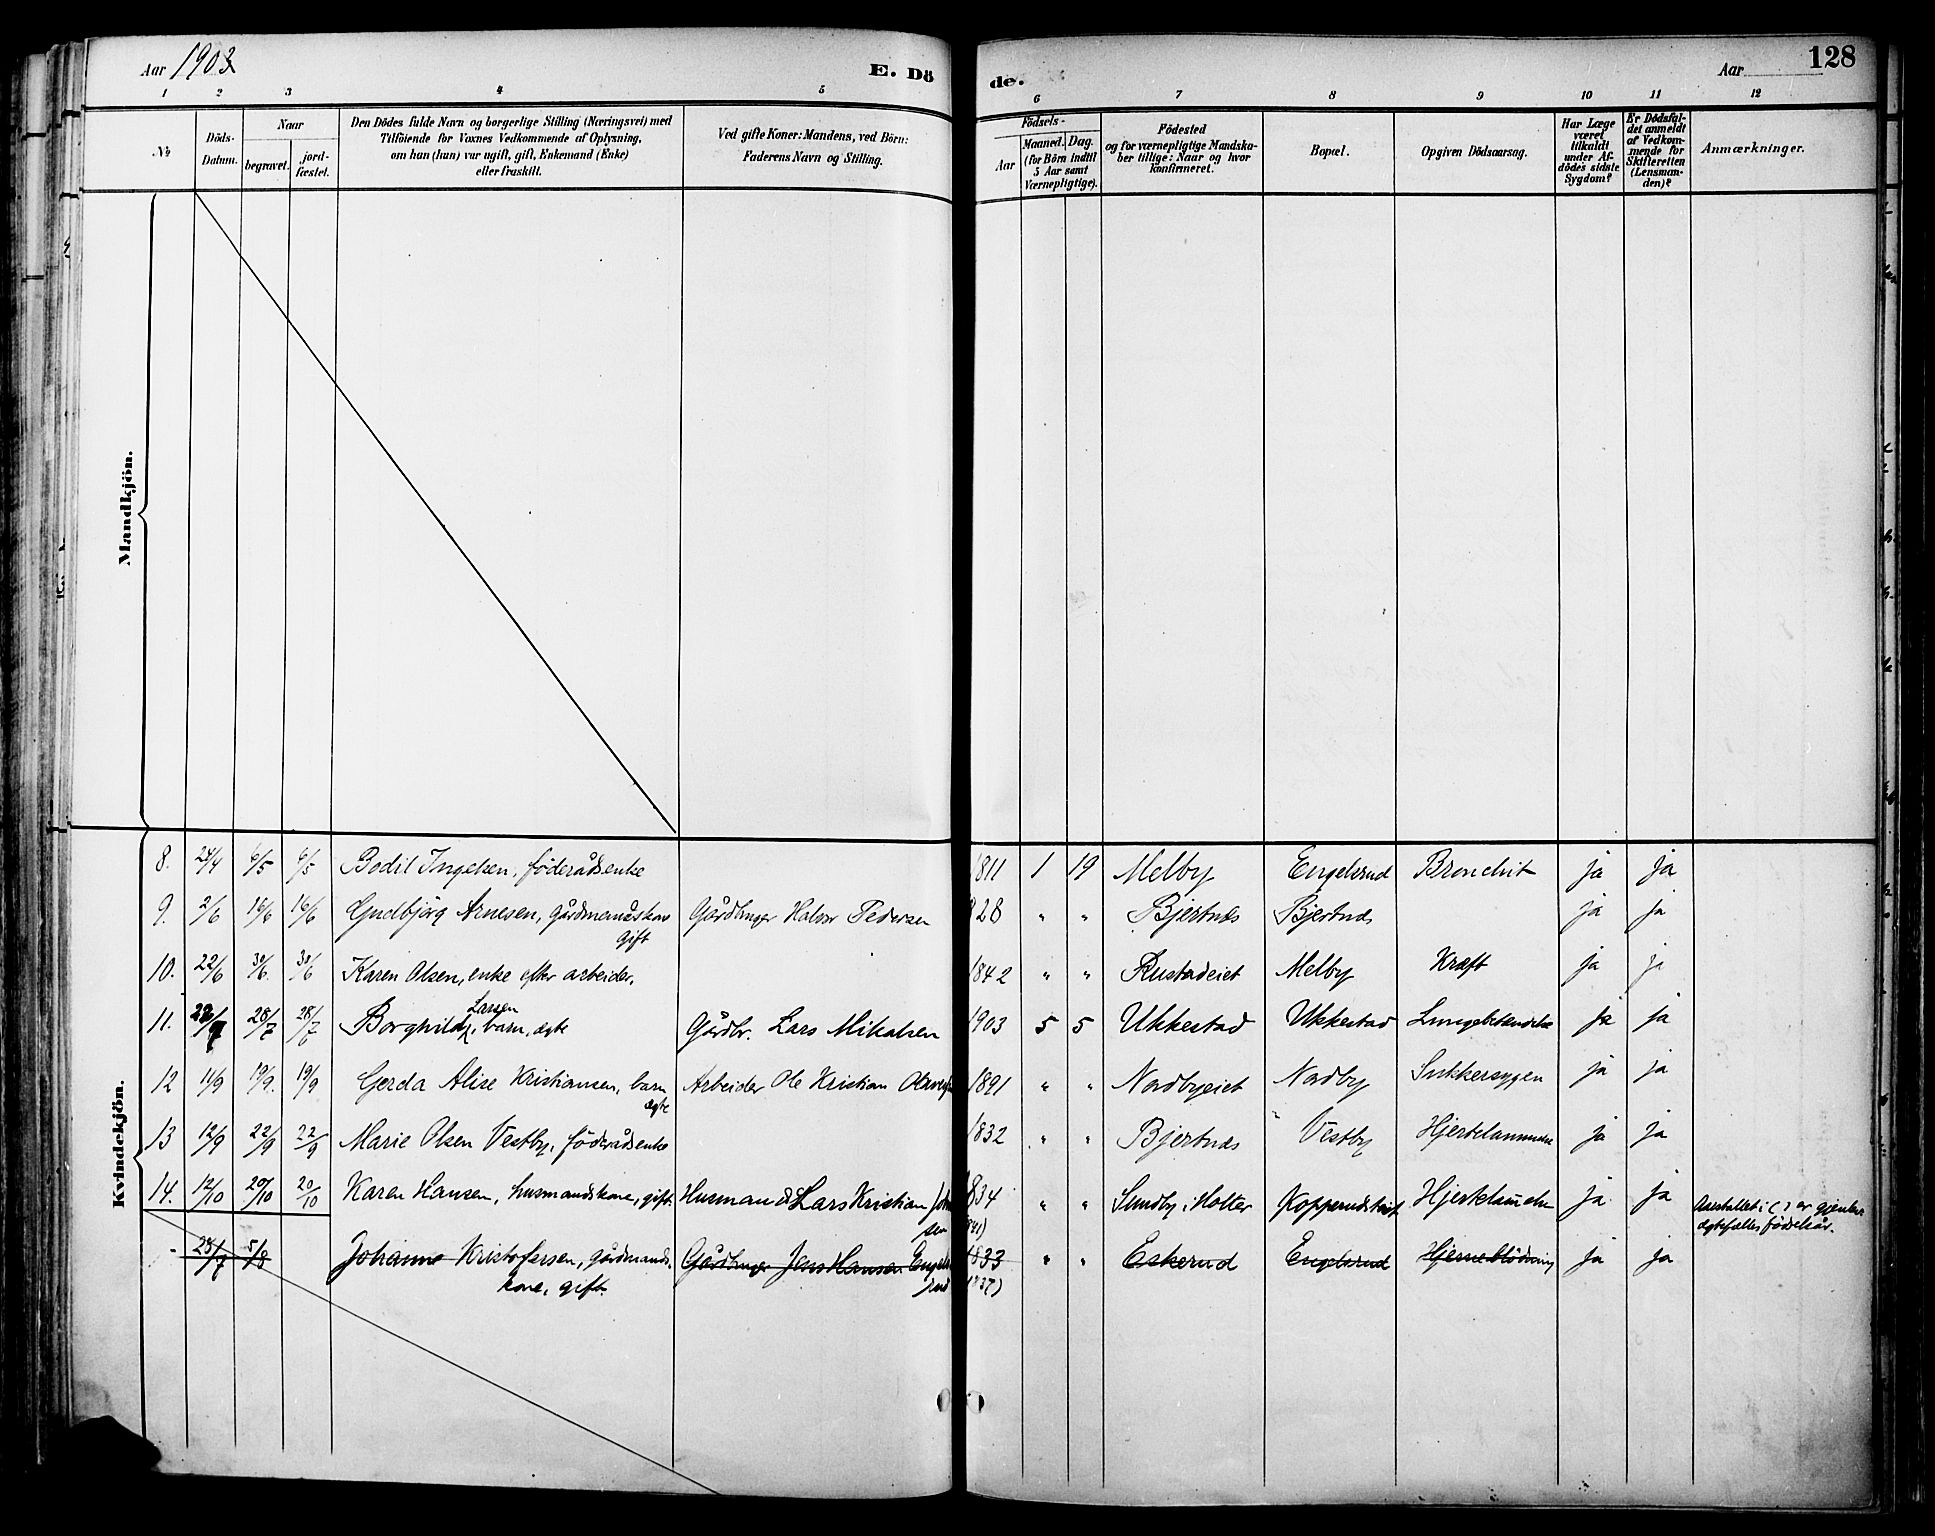 Aar 1903 E. Dö de. Aar 128
1 2 3 4 5 6 7 8 9 10 11 12
№ Döds-Datum. Naar begravet. jord-fæstet. Den Dödes fulde Navn og borgerlige Stilling (Næringsvei) med Tilföiende for Voxnes Vedkommende af Oplysning, om han (hun) var ugift, gift, Enkemand (Enke) eller fraskilt. Ved gifte Koner: Mandens, ved Börn: Faderens Navn og Stilling. Födsels- Aar Maaned. Dag. (for Börn indtil 5 Aar samt Værnepligtige). Födested og for værnepligtige Mandskaber tillige: Naar og hvor konfirmeret. Bopæl. Opgiven Dödsaarsag. Har Læge været tilkaldt under Afdödes sidste Sygdom? Er Dödsfaldet anmeldt af Vedkommende for Skifteretten (Lensmanden)? Anmærkninger.
Mandkjön.
Kvindekjön.
8. 24/4 6/5 6/5 Bodil Ingelsen, föderådsenke 1811 1 19 Melby Engelsrud Bronchit ja ja
9. 2/6 16/6 16/6 Gudbjörg Arnesen, gårdmandskone gift Gårdbruger Halvor Pedersen 828 " " Bjertnæs Bjertnæs ja ja
10. 22/6 30/6 30/6 Karen Olsen, enke efter arbeider. 1842 " " Rustadeiet Melby Kræft ja ja
11. 22/7 28/7 28/7 Borghild Larsen, barn, ægte Gårdbr. Lars Mikalsen 1903 5 5 Ukkestad Ukkestad Lungebetændelse ja ja
12 11/9 19/9. 19/9 Gerda Alise Kristiansen, barn ægte Arbeider Ole Kristian 1891 " " Nordbyeiet Nordby Sukkersygen ja ja
13 12/9 22/9 22/9 Marie Olsen Vestby, föderådsenke 1832 " " Bjertnæs Vestby Hjertelammelse ja ja
14. 12/10 20/10 20/10 Karen Hansen, husmandskone, gift. Husmand Lars Kristian 834 " " Sundby i Holter Hjertelam̄else ja ja Aarstallet i ( ) er gjenlev. ægtefælles födselsår.
25/7 5/8 Johanne Kristofersen, gårdmandskone, gift. Gårdbruger Jens Hansen Engelsrud 1833 1837) " " Eskerud Engelsrud Hjerneblödning ja ja